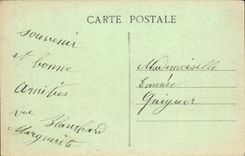 CARTE POSTALE
souvenir
et bonne
Amitiés
Blanchard
Marguerite
Mademoiselle
Guiguer